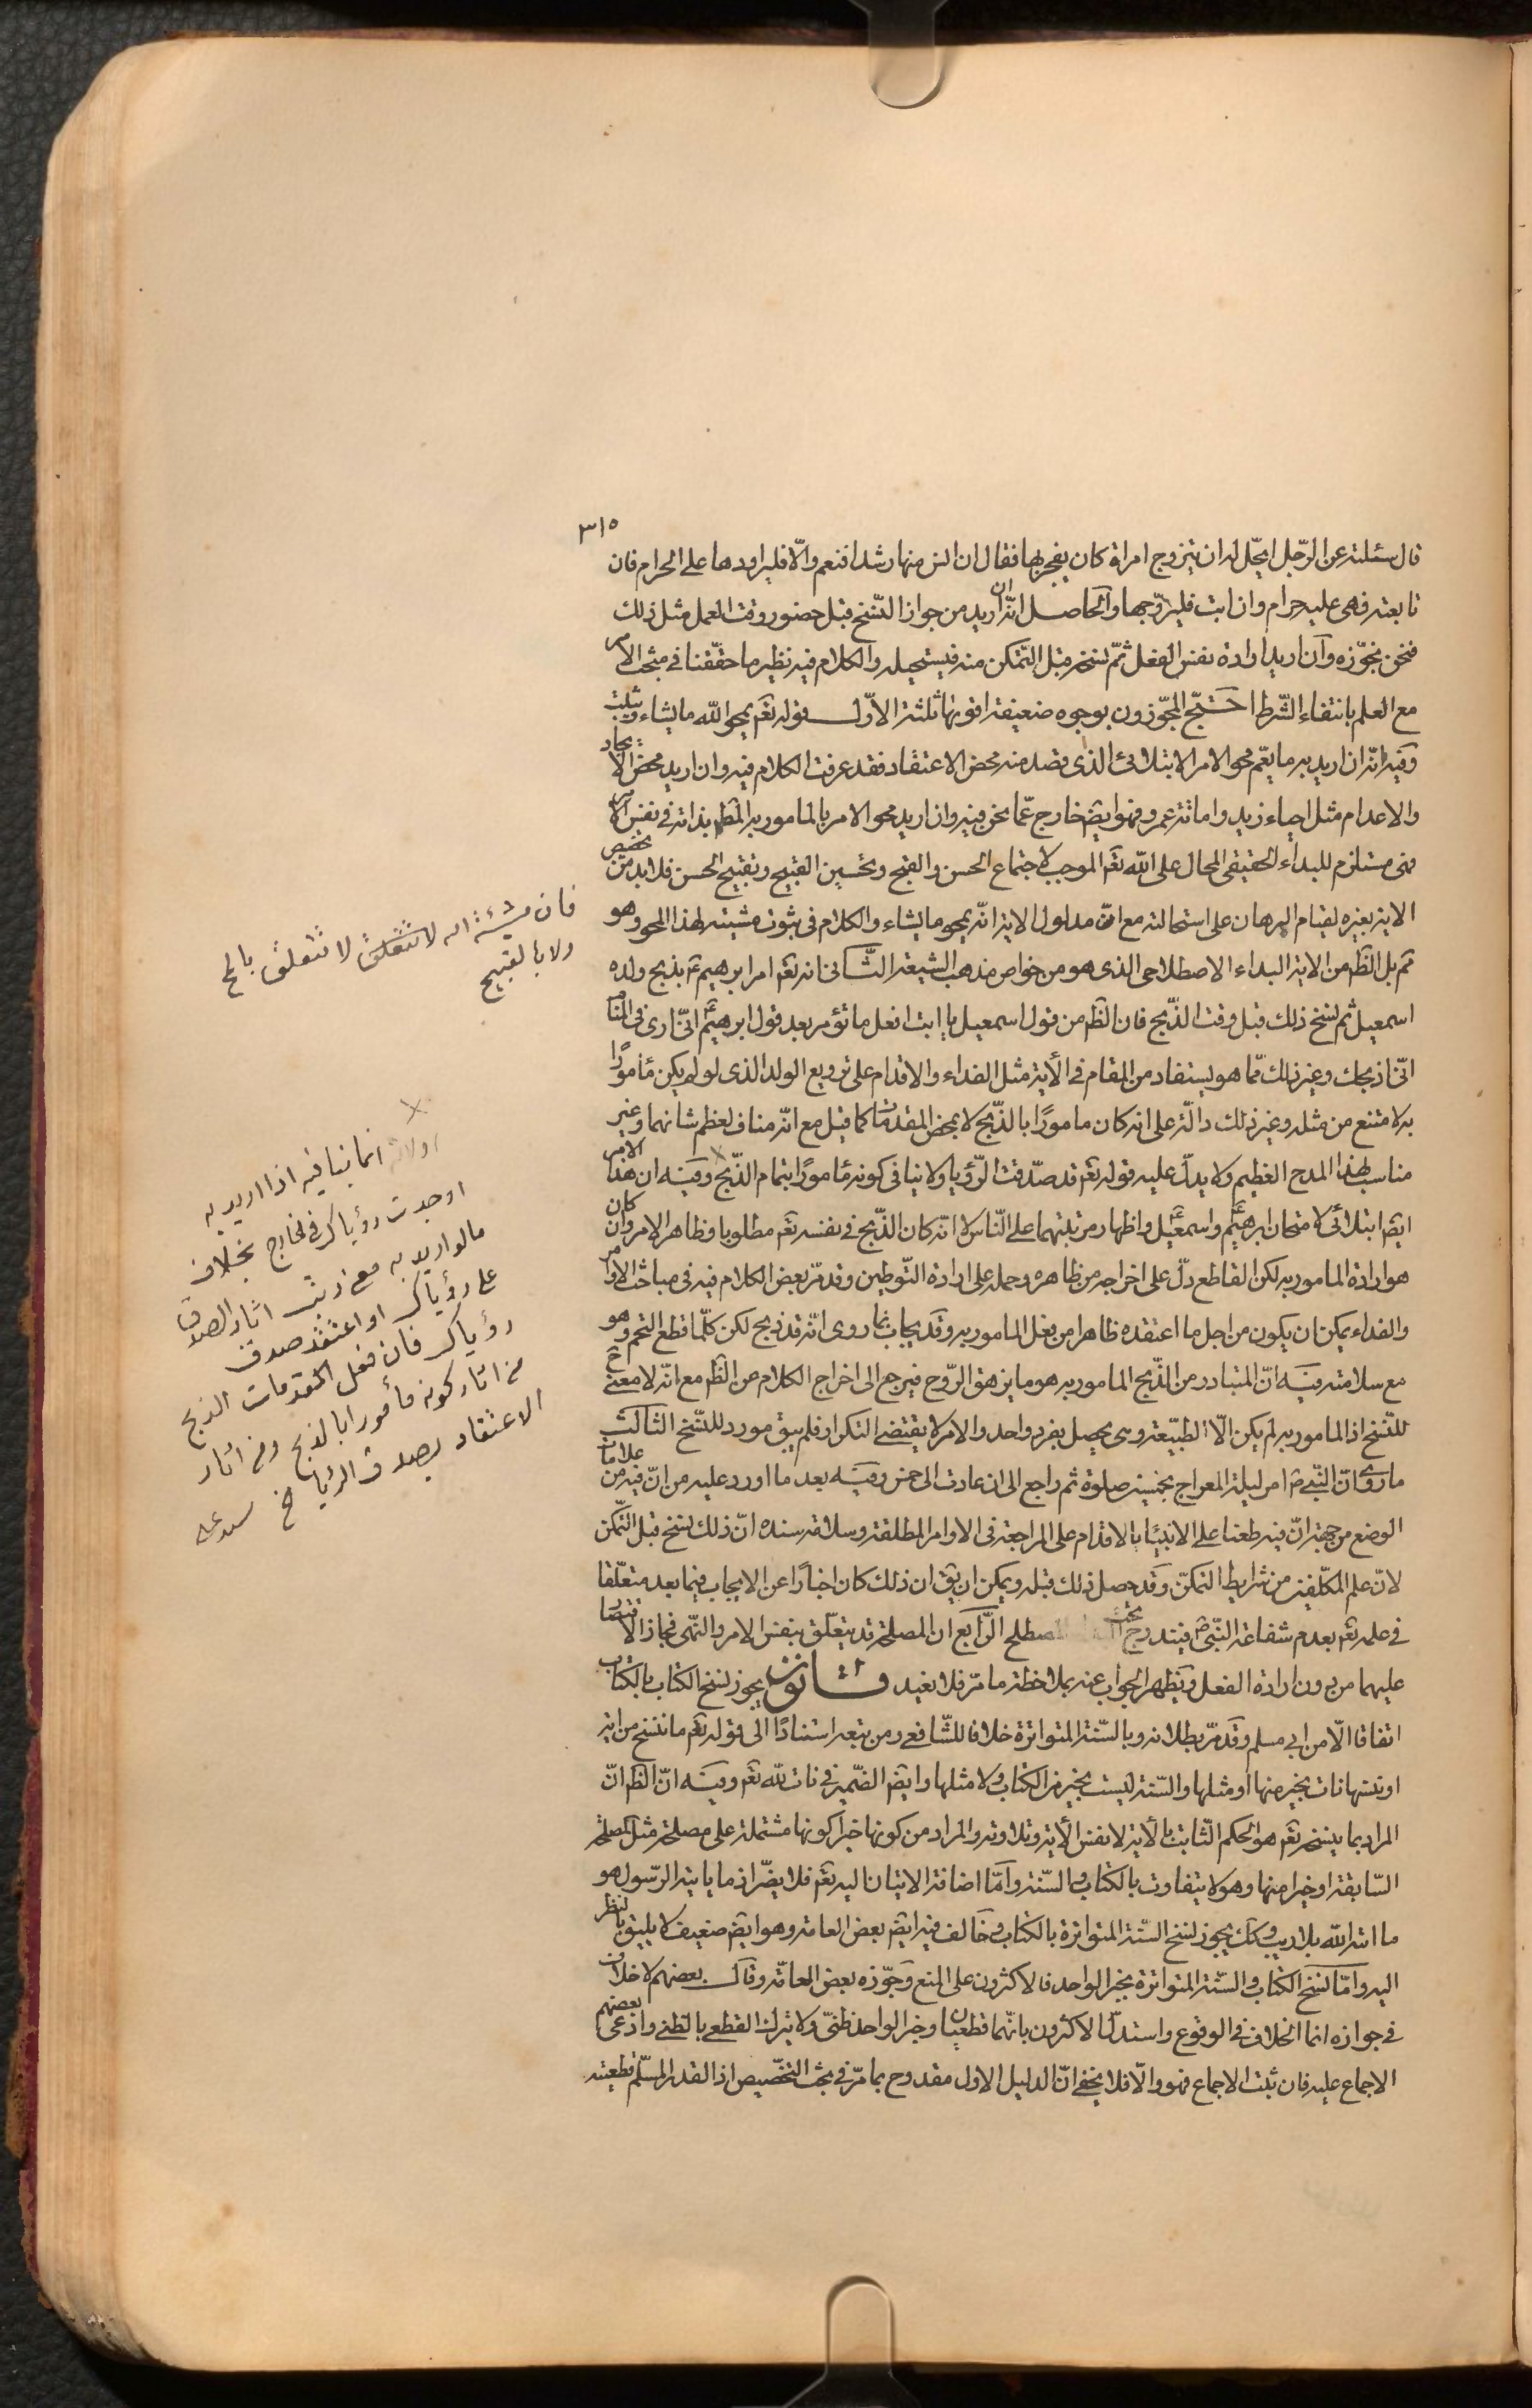 ٣١٥
قال سئلته عن الرّجل ايحّل له ان يتزوج امراة كان يفجر بها فقال ان انس منها رشدا فنعم والّا فليراودها على الحرام فان
تابعته فهى عليه حرام وان ابت فليتزوّجها والحاصل انّه ان اريد من جواز النّسخ قبل حضور وقت العمل مثل ذلك
فنحن نجوّزه وان اريد ارادة نفس الفعل ثمّ نسخه قبل التّمكن منه فيستحيله والكلام فيه نظير ما حقّقنا فى مبحث الامر
مع العلم بانتفاء الشّرط احتجّ المجّوزون بوجوه ضعيفة اقويها ثلثة الاوّل قوله تعم يمحو اللّه ما يشاء ويثبت
وفيه انّه ان اريد به ما يعّم محو الامر الابتلائى الذى قصد منه محض الاعتقاد فقد عرفت الكلام فيه وان اريد محض الايجاد
والاعدام مثل احياء زيد واماتة عمرو فهو ايضم خارج عمّا نحن فيه وان اريد محو الامر بالمامور به المظم بذاته فى نفس الامر
فهى مستلزم للبداء الحقيقى المحال على اللّه تعم الموجب لاجتماع الحسن والقبح وتحسين القبيح وتقبيح الحسن فلابد من تخصيص
الاية بغيره لقيام البرهان على استحالته مع انّ مدلول الاية انّه يمحو ما يشاء والكلام فى ثبوت مشيته لهذا المحو وهو
ثم بل الظم من الاية البداء الاصطلاحى الذى هو من خواص مذهب الشيعة الثّانى انه تعم امر ابرهيم ع بذبح ولده
اسمعيل ثم نسخ ذلك قبل وقت الذّبح فان الظم من قول اسمعيل يا ابت افعل ما تؤمر بعد قول ابرهيم ع انّى ارى فى المنام
انّى اذبحك وغير ذلك ممّا هو يستفاد من المقام فى الأية مثل الفداء والاقدام على ترويع الولد الذى لو لم يكن مأمورًا
به لامتنع من مثله وغير ذلك دالّة على انه كان مامورًا بالذّبح لا بمحض المقدمات كما قيل مع انّه مناف لعظم شانهما وغير
مناسب لهذا المدح العظيم ولا يدلّ عليه قوله تعم قد صدّقت الرّؤيا ولا ينافى كونه مأمورًا بتمام الذّبح وفيه ان هذا الامر
ايضم ابتلائى لامتحان ابرهيم ع واسمعيل ع واظهار مرتبتهما على النّاس لا انّه كان الذّبح فى نفسه تعم مطلوبا وظاهر الامر وان كان
هو ارادة المامور به لكن القاطع دلّ على اخراجه من ظاهره وحمله على ارادة التّوطين وقد مرّ بعض الكلام فيه فى مباحث الاوامر
والفداء يمكن ان يكون من اجل ما اعتقده ظاهرا من فعل المامور به وقد يجاب بما روى انّه قد ذبح لكن كلّما قطع التحم وهو
مع سلامته فيه انّ المتبادر من الذّبح المامور به هو ما يزهق الرّوح فيرجع الى اخراج الكلام عن الظم مع انّه لا معنى ح
للنّسخ اذ المامور به لم يكن الّا الطبيعة وهى يحصل بفرد واحد والامر لا يقتضى التكرار فلم يبق مورد للنّسخ الثّالث
ما روى انّ النّبى ص امر ليلة المعراج بخمسين صلوة ثم راجع الى ان عادت الى خمس وفيه بعد ما اورد عليه من انّ فيه من علامات
الوضع من جهة انّ فيه طعنا على الانبياء بالاقدام على المراجعة فى الاوامر المطلقة وسلامة سنده انّ ذلك نسخ قبل التّمكن
لانّ علم المكلّفين من شرايط التمكّن وقد حصل ذلك قبله ويمكن ان يق ان ذلك كان اخبارًا عن الايجاب فيما بعد متعلّقا
فى علمه تعم بعدم شفاعة النّبى ص فيندرج تحت المصطلح الرّابع ان المصلحة قد يتعلّق بنفس الامر والنّهى فجاز الاقتصار
عليهما من دون ارادة الفعل ويظهر الجواب عنه بملاحظة ما مرّ فلا نعيد قانون يجوز نسخ الكتاب بالكتاب
اتفاقا الّا من ابى مسلم وقد مرّ بطلانه وبالسّنة المتواترة خلافا للشّافعى ومن تبعه استنادًا الى قوله تعم ما ننسخ من اية
او ننسها نات بخير منها او مثلها والسّنة ليست بخير من الكتاب ولا مثلها وايضم الضّمير فى نات للّه تعم وفيه انّ الظم انّ
المراد بما ينسخه تعم هو الحكم الثّابت بالأية لا نفس الأية وتلاوته والمراد من كونها خيرًا كونها مشتملة على مصلحة مثل المصلحة
السّابقة او خيرا منها وهو لا يتفاوت بالكتاب والسّنة وامّا اضافة الاتيان اليه تعم فلا يضّر اذ ما ياتيه الرّسول هو
ما اتاه اللّه بلا ريب وكك يجوز نسخ السّنة المتواترة بالكتاب وخالف فيه ايضم بعض العامة وهو ايضم ضعيف لا يليق بالنظر
اليه وامّا نسخ الكتاب والسّنة المتواترة بخبر الواحد فالاكثرون على المنع وجوّزه بعض العامّة وقال بعضهم لا خلاف
فى جوازه انما الخلاف فى الوقوع واستدلّ الاكثرون بانّهما قطعيان وخبر الواحد ظنّى ولا يترك القطعى بالظنى وادّعى بعضهم
الاجماع عليه فان ثبت الاجماع فهو والّا فلا يخفى انّ الدليل الاول مقدوح بما مرّ فى بحث التخصّيص اذ القدر المسلّم قطعيته
فان مشيئة اله لا تتعلق لا تتعلق بالمح
ولا بالقبيح
انما ينافيه اذا اريد به
اوجدت رؤياك فى الخارج بخلاف
ما لو اريد به معنى رتبت اثار الصدق
على رؤياك او اعتقد صدق
رؤياك فان فعل المقدمات الذبح
من اثار كونه مأمورا بالذبح ومن اثار
الاعتقاد بصدق الرؤيا